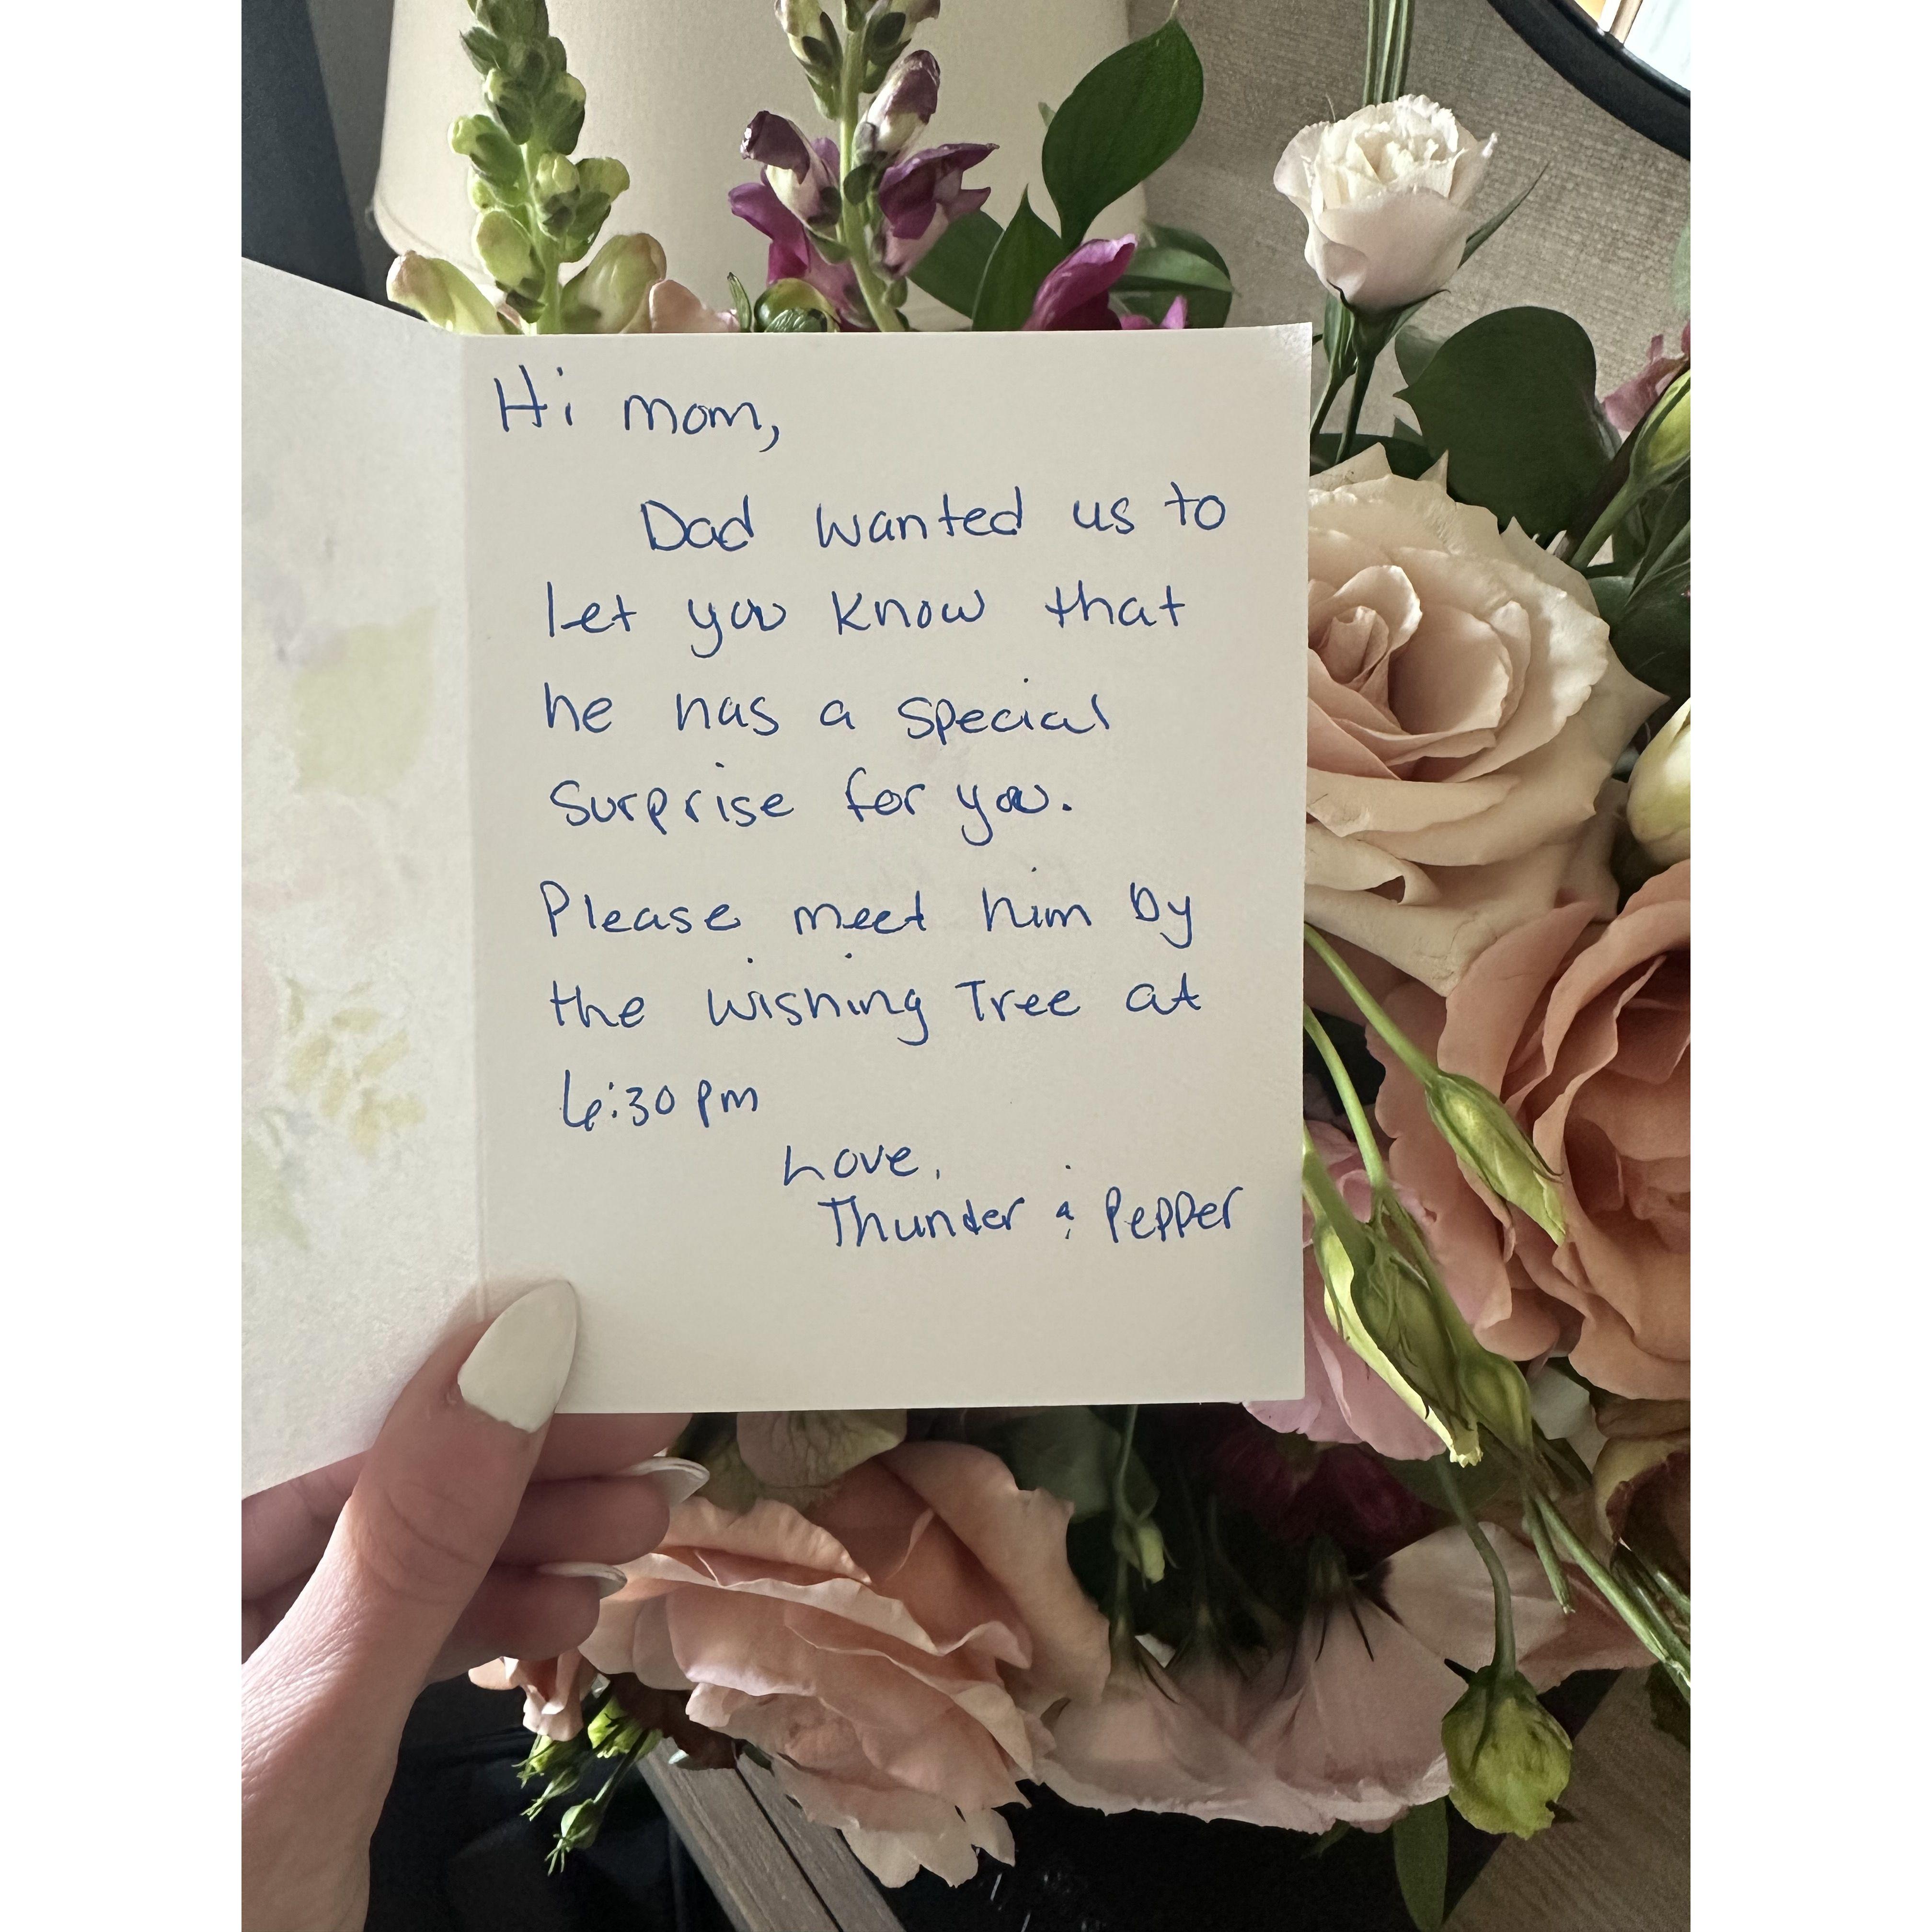 Hi mom,
Dad wanted us to
let you know that
he has a special
surprise for you.
Please meet him by
the wishing Tree at
6:30 pm
Love,
Thunder & Pepper